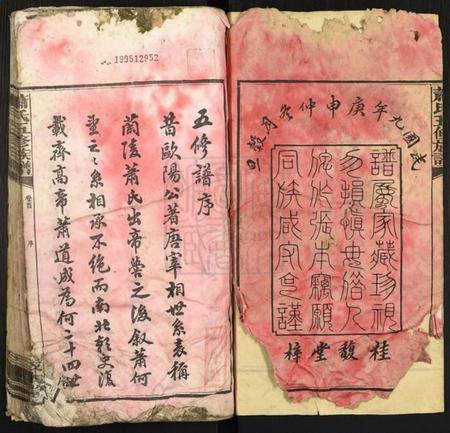 民國九年庚申仲冬月穀旦
譜屬家藏珍視
勿損慎毋借人
同族咸守
桂馥堂梓
蕭氏五修族譜
199512952
五修譜序
昔歐陽公著唐宰相世系表稱
蘭陵蕭氏出帝嚳之後敘蕭何
世系相承不絕而南北朝史後
載齊高帝蕭道成為何二十四世
蕭氏五修族譜
卷首
序